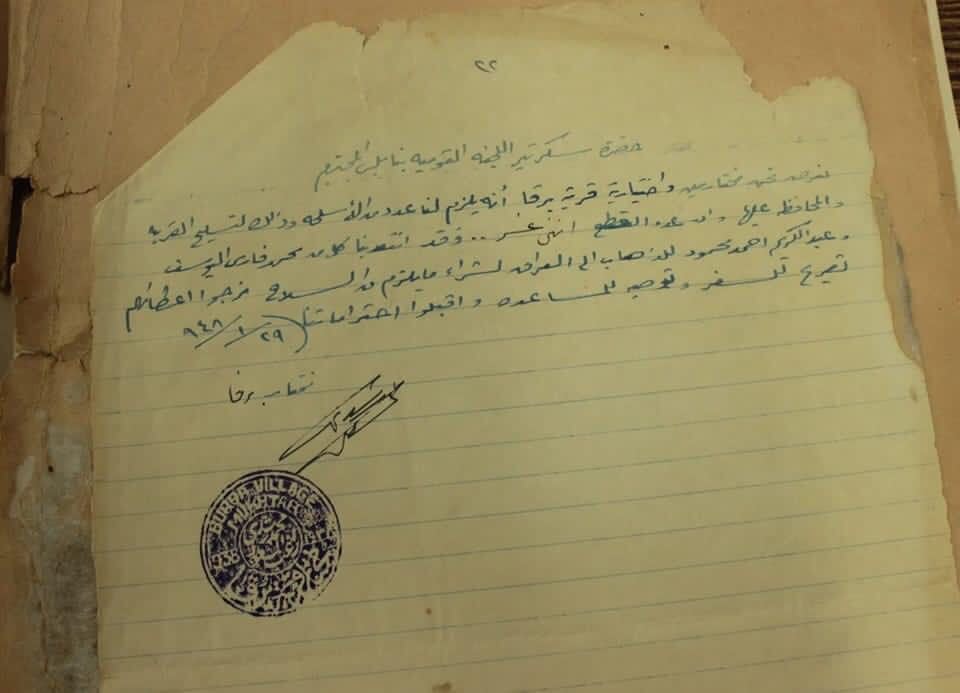 ٢٢
حضرة سكرتير اللجنه القوميه بنابلس المحترم
نعرض نحن مختارين واختيارية قرية برقا أنه يلزم لنا عدد من الأسلحه وذلك لتسليح القريه
والمحافظه عليها وان عدد القطع اثنتى عشر .. وقد انتدبنا كل من فارس اليوسف
وعبد الكريم احمد محمود للذهاب الى العراق لشراء ما يلزم من السلاح نرجوا اعطائهم
تصريح للسفر وتوصيه للمساعده واقبلوا احتراماتنا ٢٩/١/٩٤٨
برقا
BURQA VILLAGE
MUKHTAR
1938